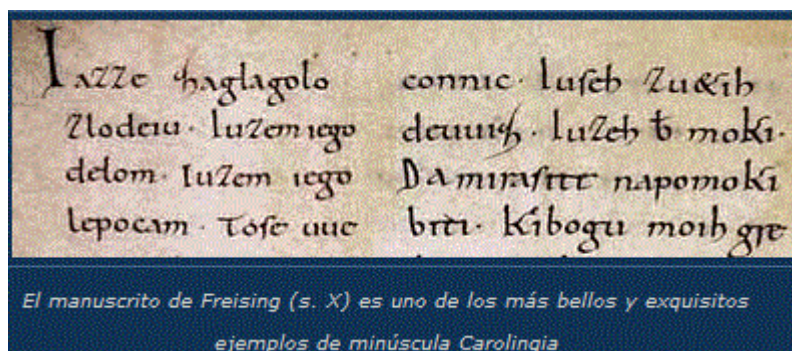 Iazze zaglagolo
zlodeiu · Iuzem iego
delom · Iuzem iego
lepocam · Tose uue
connic · Iuseh zu&ih
deuuiz · Iuzeh ƀ moki ·
Da mirasite napomoki
biti · Kibogu moih gre
El manuscrito de Freising (s. X) es uno de los más bellos y exquisitos
ejemplos de minúscula Carolingia